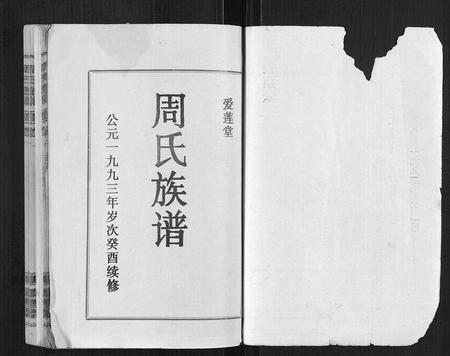 爱莲堂
周氏族谱
公元一九九三年岁次癸酉续修